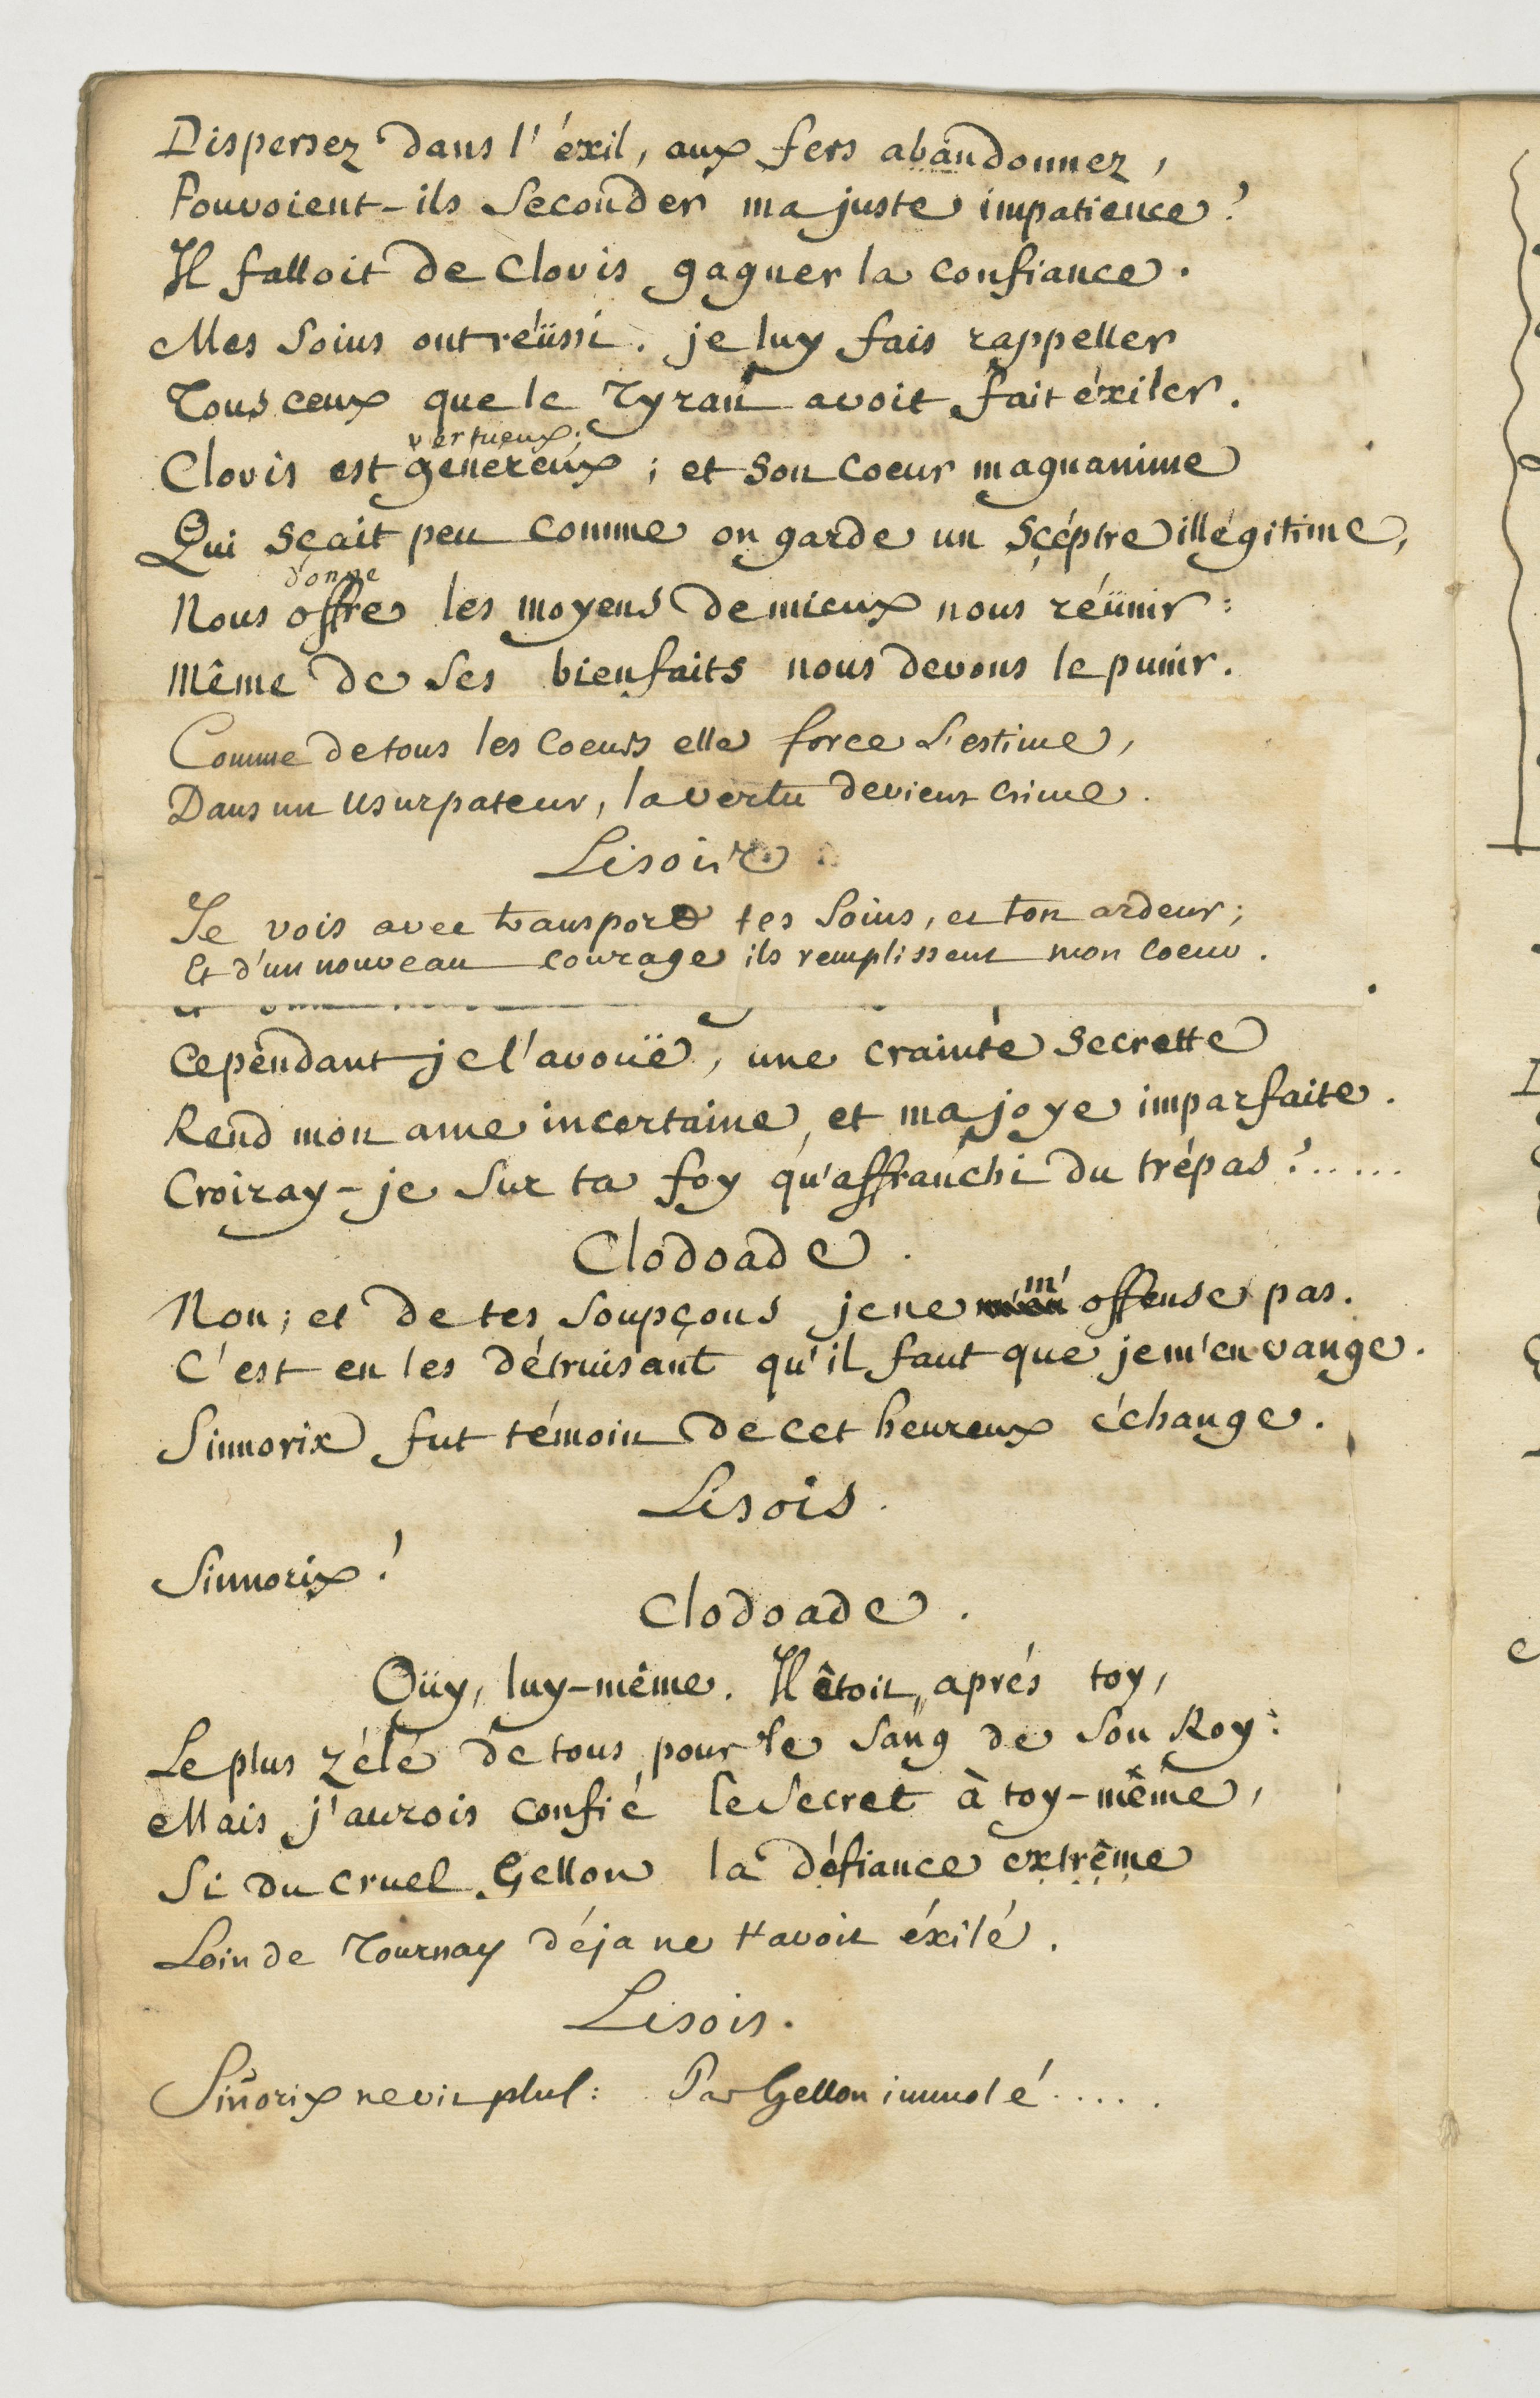 Dispersez dans l'éxil, aux fers abandonnez,
Pouvoient-ils seconder ma juste impatience?
Il falloit de Clovis gagner la confiance.
Mes soins ont reüssi. je luy fais rappeller
Tous ceux que le Tyran avoit fait éxiler.
vertueux;
Clovis est généreux; et son coeur magnanime
Qui sçait peu comme on garde un sçéptre illégitime,
donne
Nous offre les moyens de mieux nous réünir:
Même de ses bienfaits nous devons le punir.
Comme de tous les coeurs elle force l'estime,
Dans un usurpateur, la vertu devient crime.
Lisois
Je vois avec transport tes soins, et ton ardeur;
Et d'un nouveau courage ils remplissent mon coeur.
Cependant je l'avoüe, une crainte secrette
Rend mon ame incertaine, et ma joye imparfaite.
Croiray-je sur ta foy qu'affranchi du trépas?.....
Clodoade.
m'
Non; et de tes soupçons je ne m'en offense pas.
C'est en les détruisant qu'il faut que je m'en vange.
Sinnorix fut témoin de cet heureux échange.
Lisois.
Sinnorix!
Clodoade.
Oüy, luy-même. Il êtoit, aprés toy,
Le plus zélé de tous pour le sang de son Roy:
Mais j'aurois confié le secret à toy-même,
Si du cruel Gellon la défiance extrême
Loin de Tournay déja ne t'avoit éxilé.
Lisois.
Siñorix ne vit plus: Par Gellon immolé.....